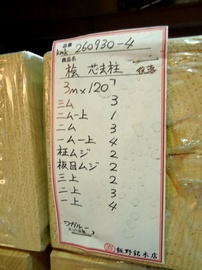 品番 kmk 260930-4
商品名
桧 芯去柱
3m×120
三ム 3
二ム一上 4
二ム 1
一ム一上 4
柾ムジ 2
板目ムジ 2
三上 2
二上 3
一上 4
飯野銘木店